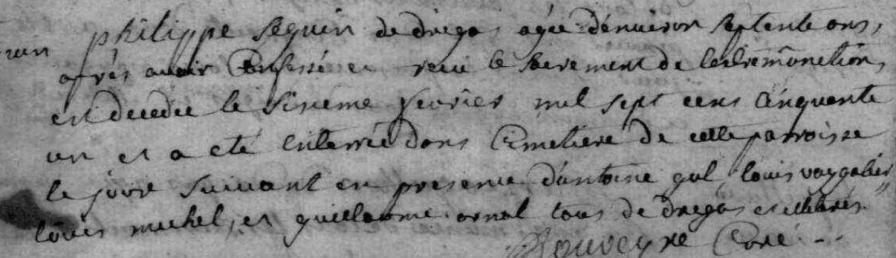 philippe seguin de dregas agée denuiron septente ans,
aprés auoir Confessé et receu le sacrement de lextremonction,
est decedée le sixieme fevrier mil sept cens cinquente
un et a eté enterrée dans Cimetiere de cette parroisse
le jour suivant en presence d'antoine gal louis
louis michel, et guillaume arnal tous de dregas et illitérés
Rouveyre Curé